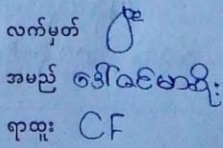 လက်မှတ်
အမည် ဒေါ်ခင်မာချို
ရာထူး CF